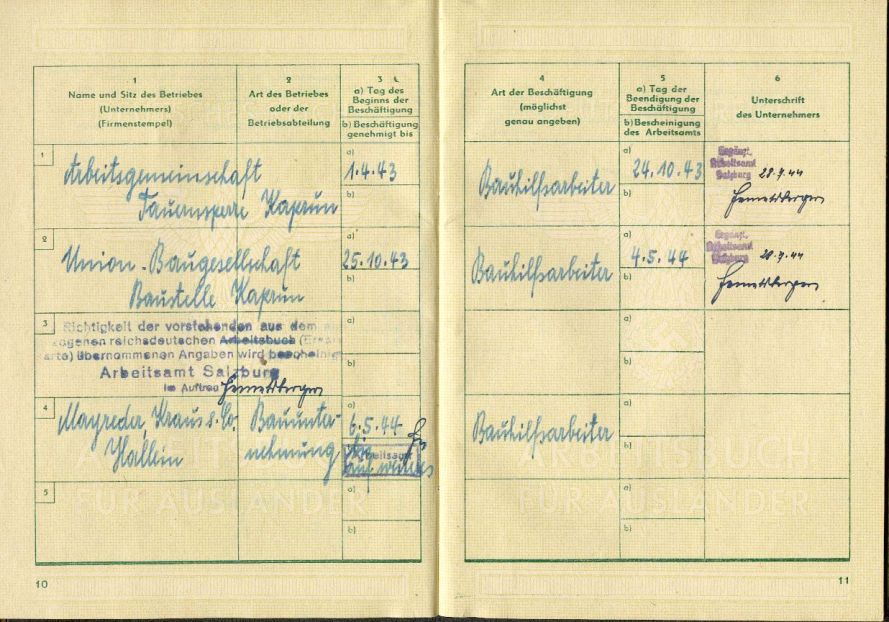 1
Name und Sitz des Betriebes
(Unternehmers)
(Firmenstempel)
2
Art des Betriebes
oder der
Betriebsabteilung
3
a) Tag des
Beginns der
Beschäftigung
b) Beschäftigung
genehmigt bis
1
Arbeitsgemeinschaft
Tauernsperre Kaprun
a)
1.4.43
b)
2
Union-Baugesellschaft
Baustelle Kaprun
a)
25.10.43
b)
3
Richtigkeit der vorstehenden aus dem
zogenen reichsdeutschen Arbeitsbuch
arte) übernommenen Angaben wird bescheinig
Arbeitsamt Salzburg
Im Auftrag
a)
b)
4
Mayreder, Kraus & Co.
Hallein
Bauunter-
nehmung
a)
6.5.44
bis
Arbeitsamt
auf weiteres
5
a)
b)
10
4
Art der Beschäftigung
(möglichst
genau angeben)
5
a) Tag der
Beendigung der
Beschäftigung
b) Bescheinigung
des Arbeitsamts
6
Unterschrift
des Unternehmers
Bauhilfsarbeiter
a)
24.10.43
b)
Ergänzt,
Arbeitsamt
Salzburg
28.9.44
Bauhilfsarbeiter
a)
4.5.44
b)
Ergänzt,
Arbeitsamt
Salzburg
28.9.44
a)
b)
Bauhilfsarbeiter
a)
b)
ARBEITSBUCH
FÜR AUSLÄNDER
a)
b)
11